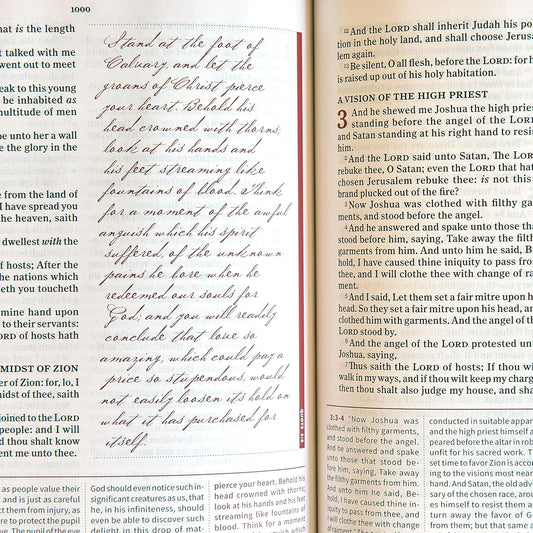 1000
hat is the length
t talked with me
went out to meet
eak to this young
be inhabited as
multitude of men
be unto her a wall
e the glory in the
from the land of
I have spread you
the heaven, saith
dwellest with the
of hosts; After the
he nations which
eth you toucheth
mine hand upon
to their servants:
LORD of hosts hath
MIDST OF ZION
er of Zion: for, lo, I
midst of thee, saith
joined to the LORD
people: and I will
d thou shalt know
ent me unto thee.
Stand at the foot of
Calvary, and let the
groans of Christ pierce
your heart. Behold his
head crowned with thorns;
look at his hands and
his feet streaming like
fountains of blood. Think
for a moment of the awful
anguish which his spirit
suffered, of the unknown
pains he bore when he
redeemed our souls for
God; and you will readily
conclude that love so
amazing, which could pay a
price so stupendous, would
not easily loosen its hold on
what it has purchased for
itself.
as people value their
and is just as careful
ct them from injury, as
re to protect the pupil
ye. The pupil of the eye
God should even notice such in-
significant creatures as us, that
he, in his infiniteness, should
even be able to discover such
delight in this drop of mat-
pierce your heart. Behold his
head crowned with thorns;
look at his hands and his feet
streaming like fountains of
blood. Think for a moment
of the awful anguish which
12And the LORD shall inherit Judah his po
tion in the holy land, and shall choose Jerusa
lem again.
13Be silent, O all flesh, before the LORD: for h
is raised up out of his holy habitation.
A VISION OF THE HIGH PRIEST
3 And he shewed me Joshua the high pries
standing before the angel of the LORD
and Satan standing at his right hand to resis
him.
2And the LORD said unto Satan, The LOR
rebuke thee, O Satan; even the LORD that hat
chosen Jerusalem rebuke thee: is not this
brand plucked out of the fire?
3Now Joshua was clothed with filthy gar
ments, and stood before the angel.
4And he answered and spake unto those tha
stood before him, saying, Take away the filthy
garments from him. And unto him he said, B
hold, I have caused thine iniquity to pass from
thee, and I will clothe thee with change of ra
ment.
5And I said, Let them set a fair mitre upon h
head. So they set a fair mitre upon his head, an
clothed him with garments. And the angel of th
LORD stood by.
6And the angel of the LORD protested unt
Joshua, saying,
7Thus saith the LORD of hosts; If thou wi
walk in my ways, and if thou wilt keep my charg
then thou shalt also judge my house, and shal
3:3-4 "Now Joshua was
clothed with filthy garments,
and stood before the angel.
And he answered and spake
unto those that stood be-
fore him, saying, Take away
the filthy garments from him.
And unto him he said, Be-
hold, I have caused thine in-
iquity to pass from thee, and
I will clothe thee with change
of raiment."
conducted in suitable appar
and the high priest himself a
peared before the altar in rob
unfit for his sacred work. T
set time to favor Zion is accor
ing to the visions most near
hand. And Satan, the old adve
sary of the chosen race, arou
es himself to resist them a
turn away the favor of G
from them; but that same a